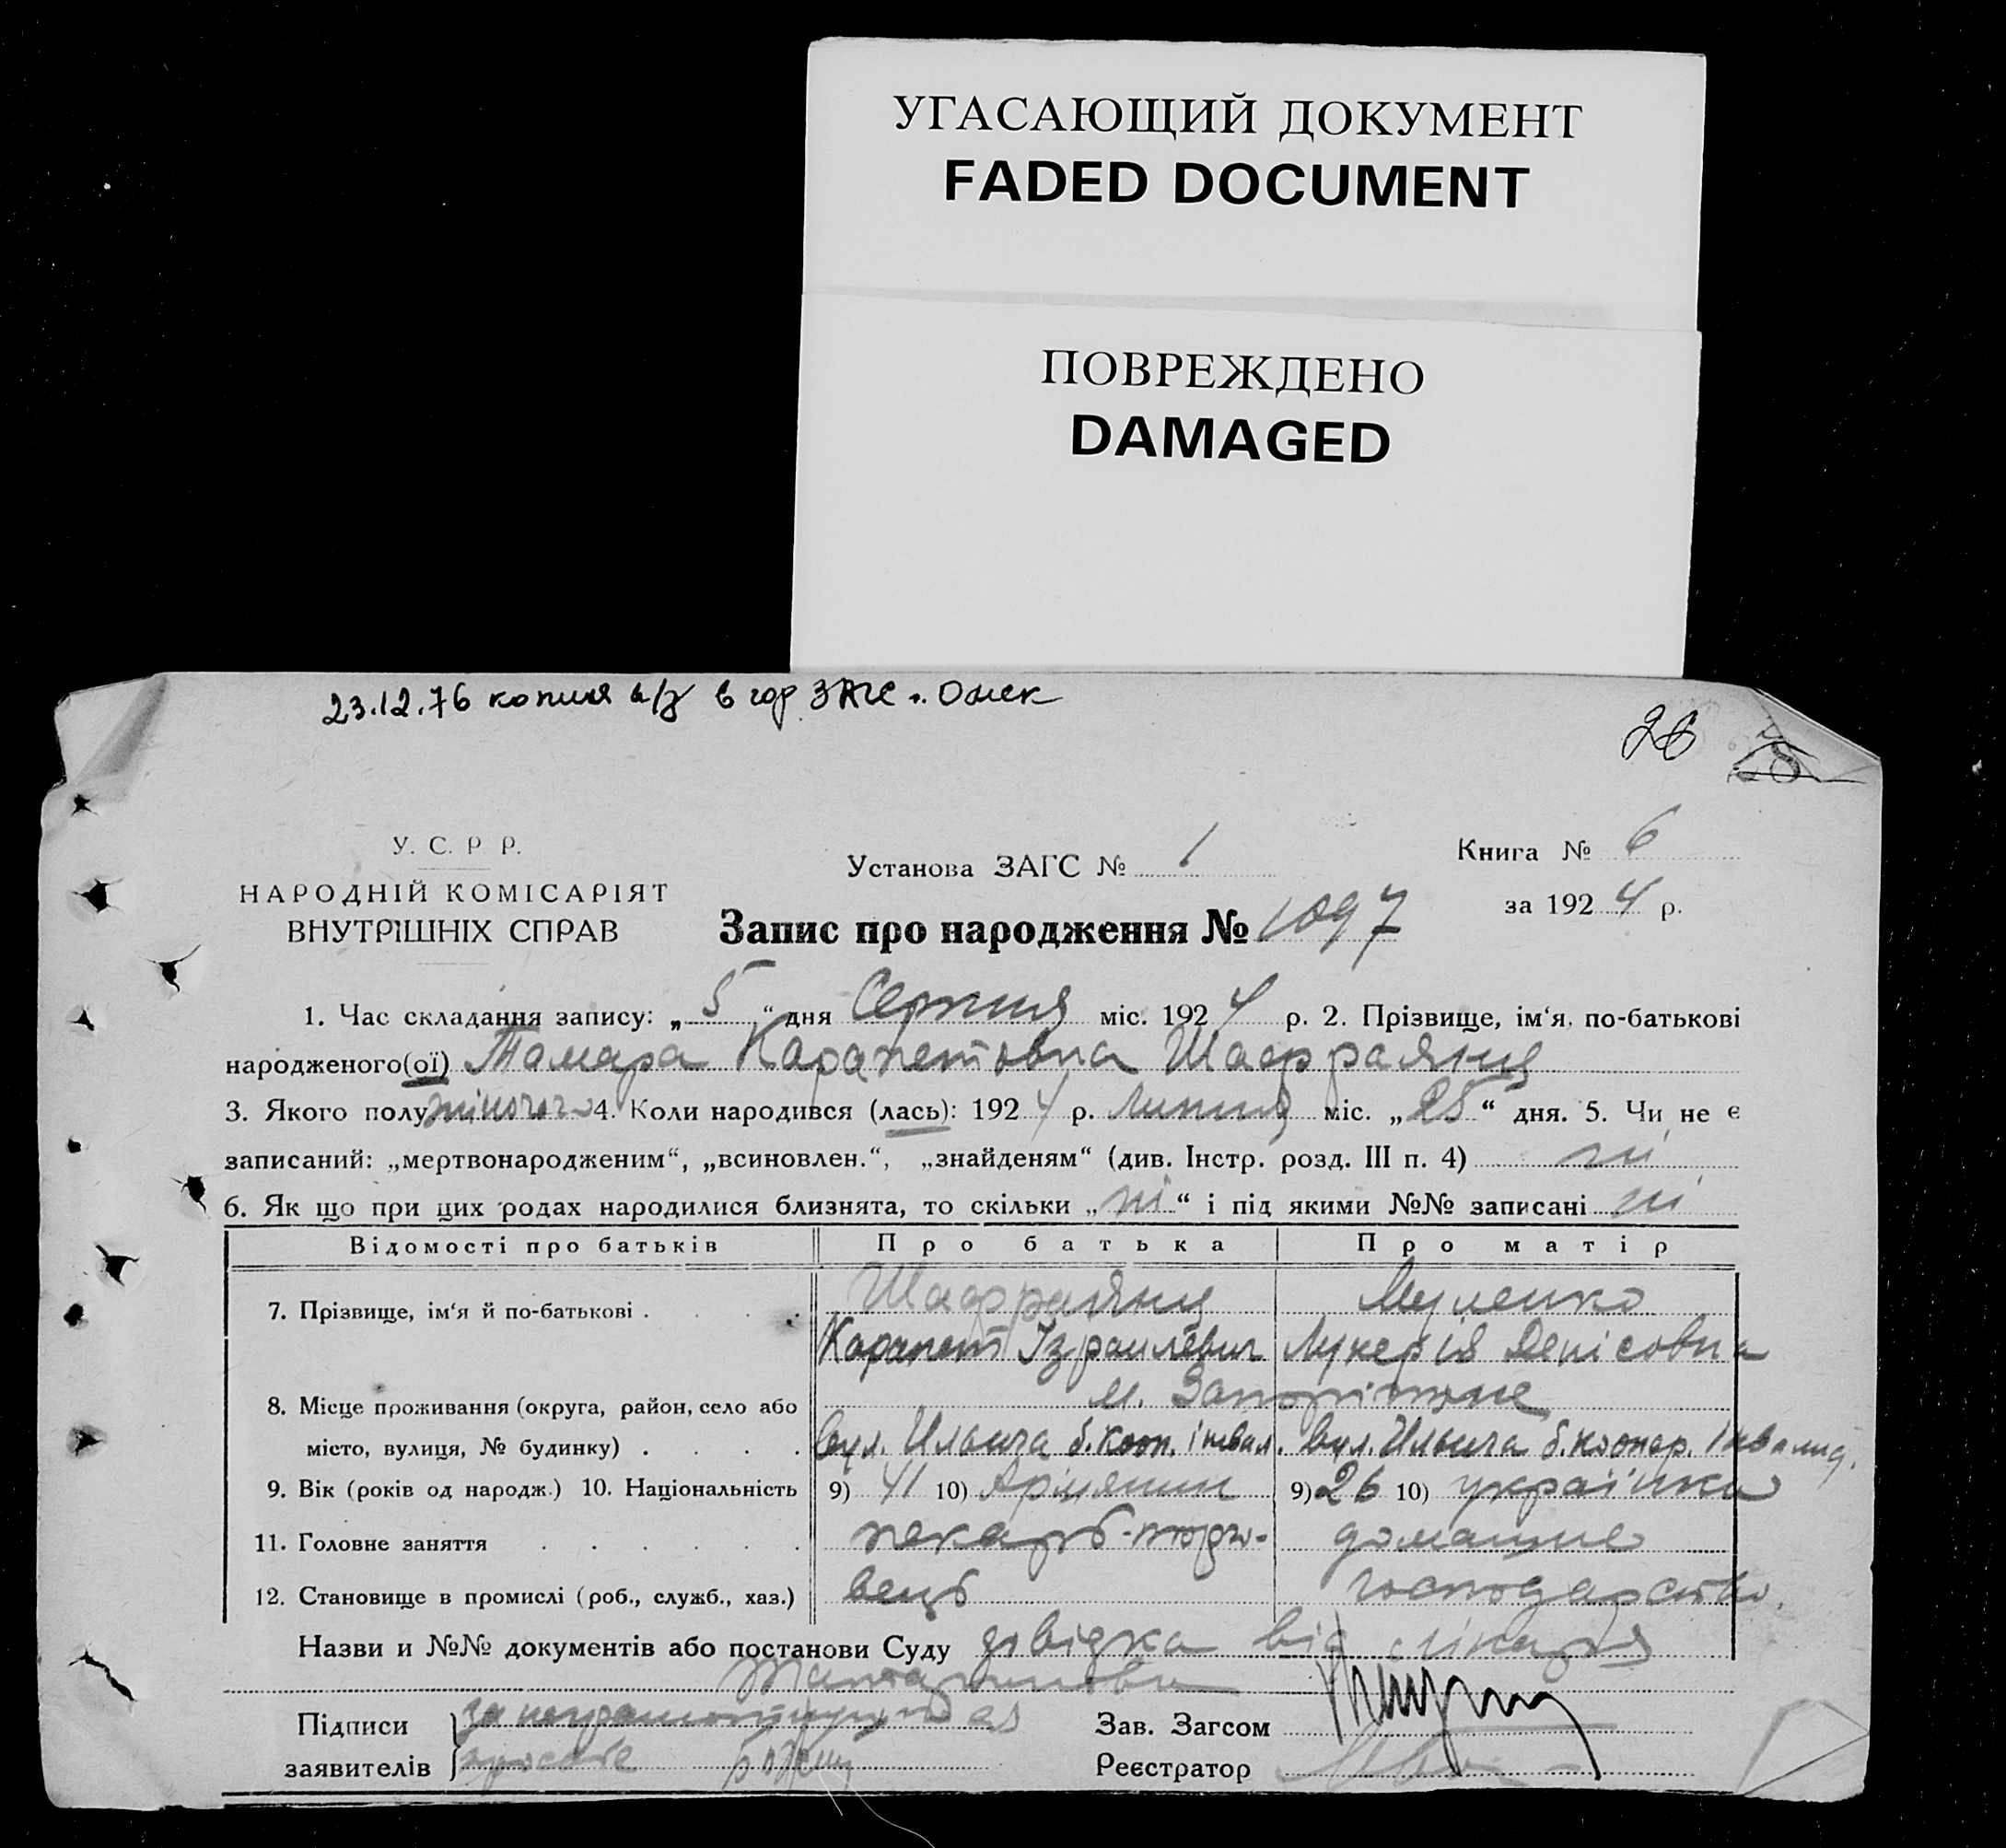 УГАСАЮЩИЙ ДОКУМЕНТ
FADED DOCUMENT
ПОВРЕЖДЕНО
DAMAGED
23.12.76 копия а/з в гор ЗАГС г. Омск
26
У. С. Р Р.
НАРОДНІЙ КОМІСАРІЯТ
ВНУТРІШНІХ СПРАВ
Установа ЗАГС № 1
Книга № 6
за 1924 р.
Запис про народження № 1097
1. Час складання запису: „5“ дня Серпня міс. 1924 р. 2. Прізвище, ім‘я, по-батькові
народженого(ої) Тамара Карапетовна Шафраянц
3. Якого полу жіночого 4. Коли народився (лась): 1924 р. Липня міс. „25“ дня. 5. Чи не є
записаний: „мертвонародженим“, „всиновлен.“, „знайденям“ (див. Інстр. розд. III п. 4) ні
6. Як що при цих родах народилися близнята, то скільки „ні“ і під якими №№ записані ні
Відомості про батьків Про батька Про матір
7. Прізвище, ім‘я й по-батькові . . . . Шафраянц
Карапет Ізраилевич Лукерія Денісовна
м. Запоріжжє
8. Місце проживання (округа, район, село або
місто, вулиця, № будинку) . . . . вул. Ильича б. кооп. інвал. вул. Ильича б. коопер. Інвалид.
9. Вік (років од народж.) 10. Національність 9) 41 10) Армянин 9) 26 10) українка
11. Головне заняття . . . . . . пекарь-торго- домашнє
12. Становище в промислі (роб., служб., хаз.) вець господарство.
Назви и №№ документів або постанови Суду довідка від лікаря
Підписи за неграмотную
заявителів
Зав. Загсом
Реєстратор